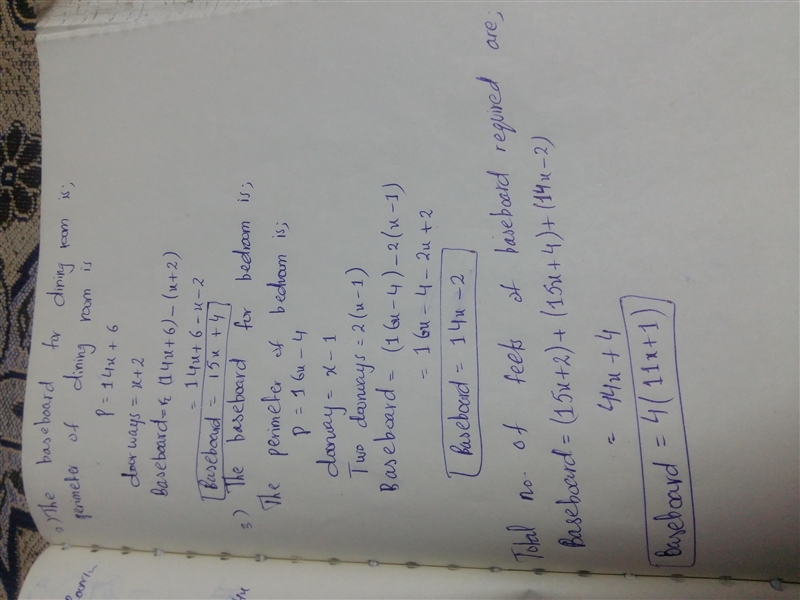 2) The baseboard for dining room is;
perimeter of dining room is
P = 14x + 6
doorways = x+2
Baseboard = (14x+6) - (x+2)
= 14x + 6 - x - 2
Baseboard = 15x + 4
3) The baseboard for bedroom is;
The perimeter of bedroom is;
P = 16x - 4
doorway = x - 1
Two doorways = 2(x-1)
Baseboard = (16x-4) - 2(x-1)
= 16x - 4 - 2x + 2
Baseboard = 14x - 2
Total no. of feets of baseboard required are;
Baseboard = (15x+2) + (15x+4) + (14x-2)
= 44x + 4
Baseboard = 4(11x+1)